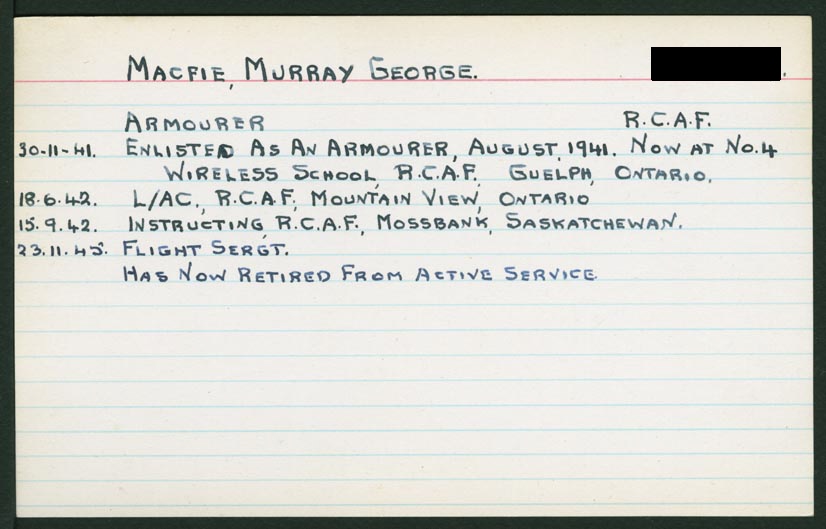 MACFIE, MURRAY GEORGE.
ARMOURER R.C.A.F.
30-11-41. ENLISTED AS AN ARMOURER, AUGUST, 1941. NOW AT NO.4
WIRELESS SCHOOL, R.C.A.F. GUELPH, ONTARIO.
18.6.42. L/AC., R.C.A.F. MOUNTAIN VIEW, ONTARIO
15.9.42. INSTRUCTING, R.C.A.F., MOSSBANK, SASKATCHEWAN.
23.11.45. FLIGHT SERGT.
HAS NOW RETIRED FROM ACTIVE SERVICE.